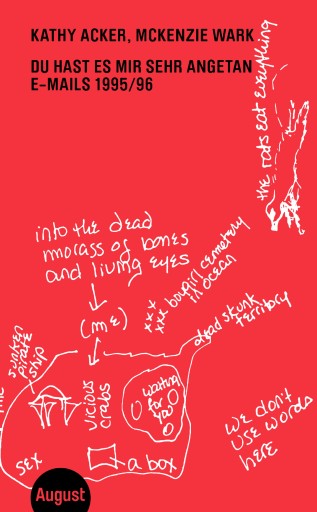 KATHY ACKER, MCKENZIE WARK
DU HAST ES MIR SEHR ANGETAN
E-MAILS 1995/96
the rats eat everything
into the dead
morass of bones
and living eyes
(me)
xxx
xxx bowgirl cemetery
in ocean
dead skunk
territory
sunken
pirate
ship
vicious
crabs
waiting
for
you
we don't
use words
here
sex
a box
August